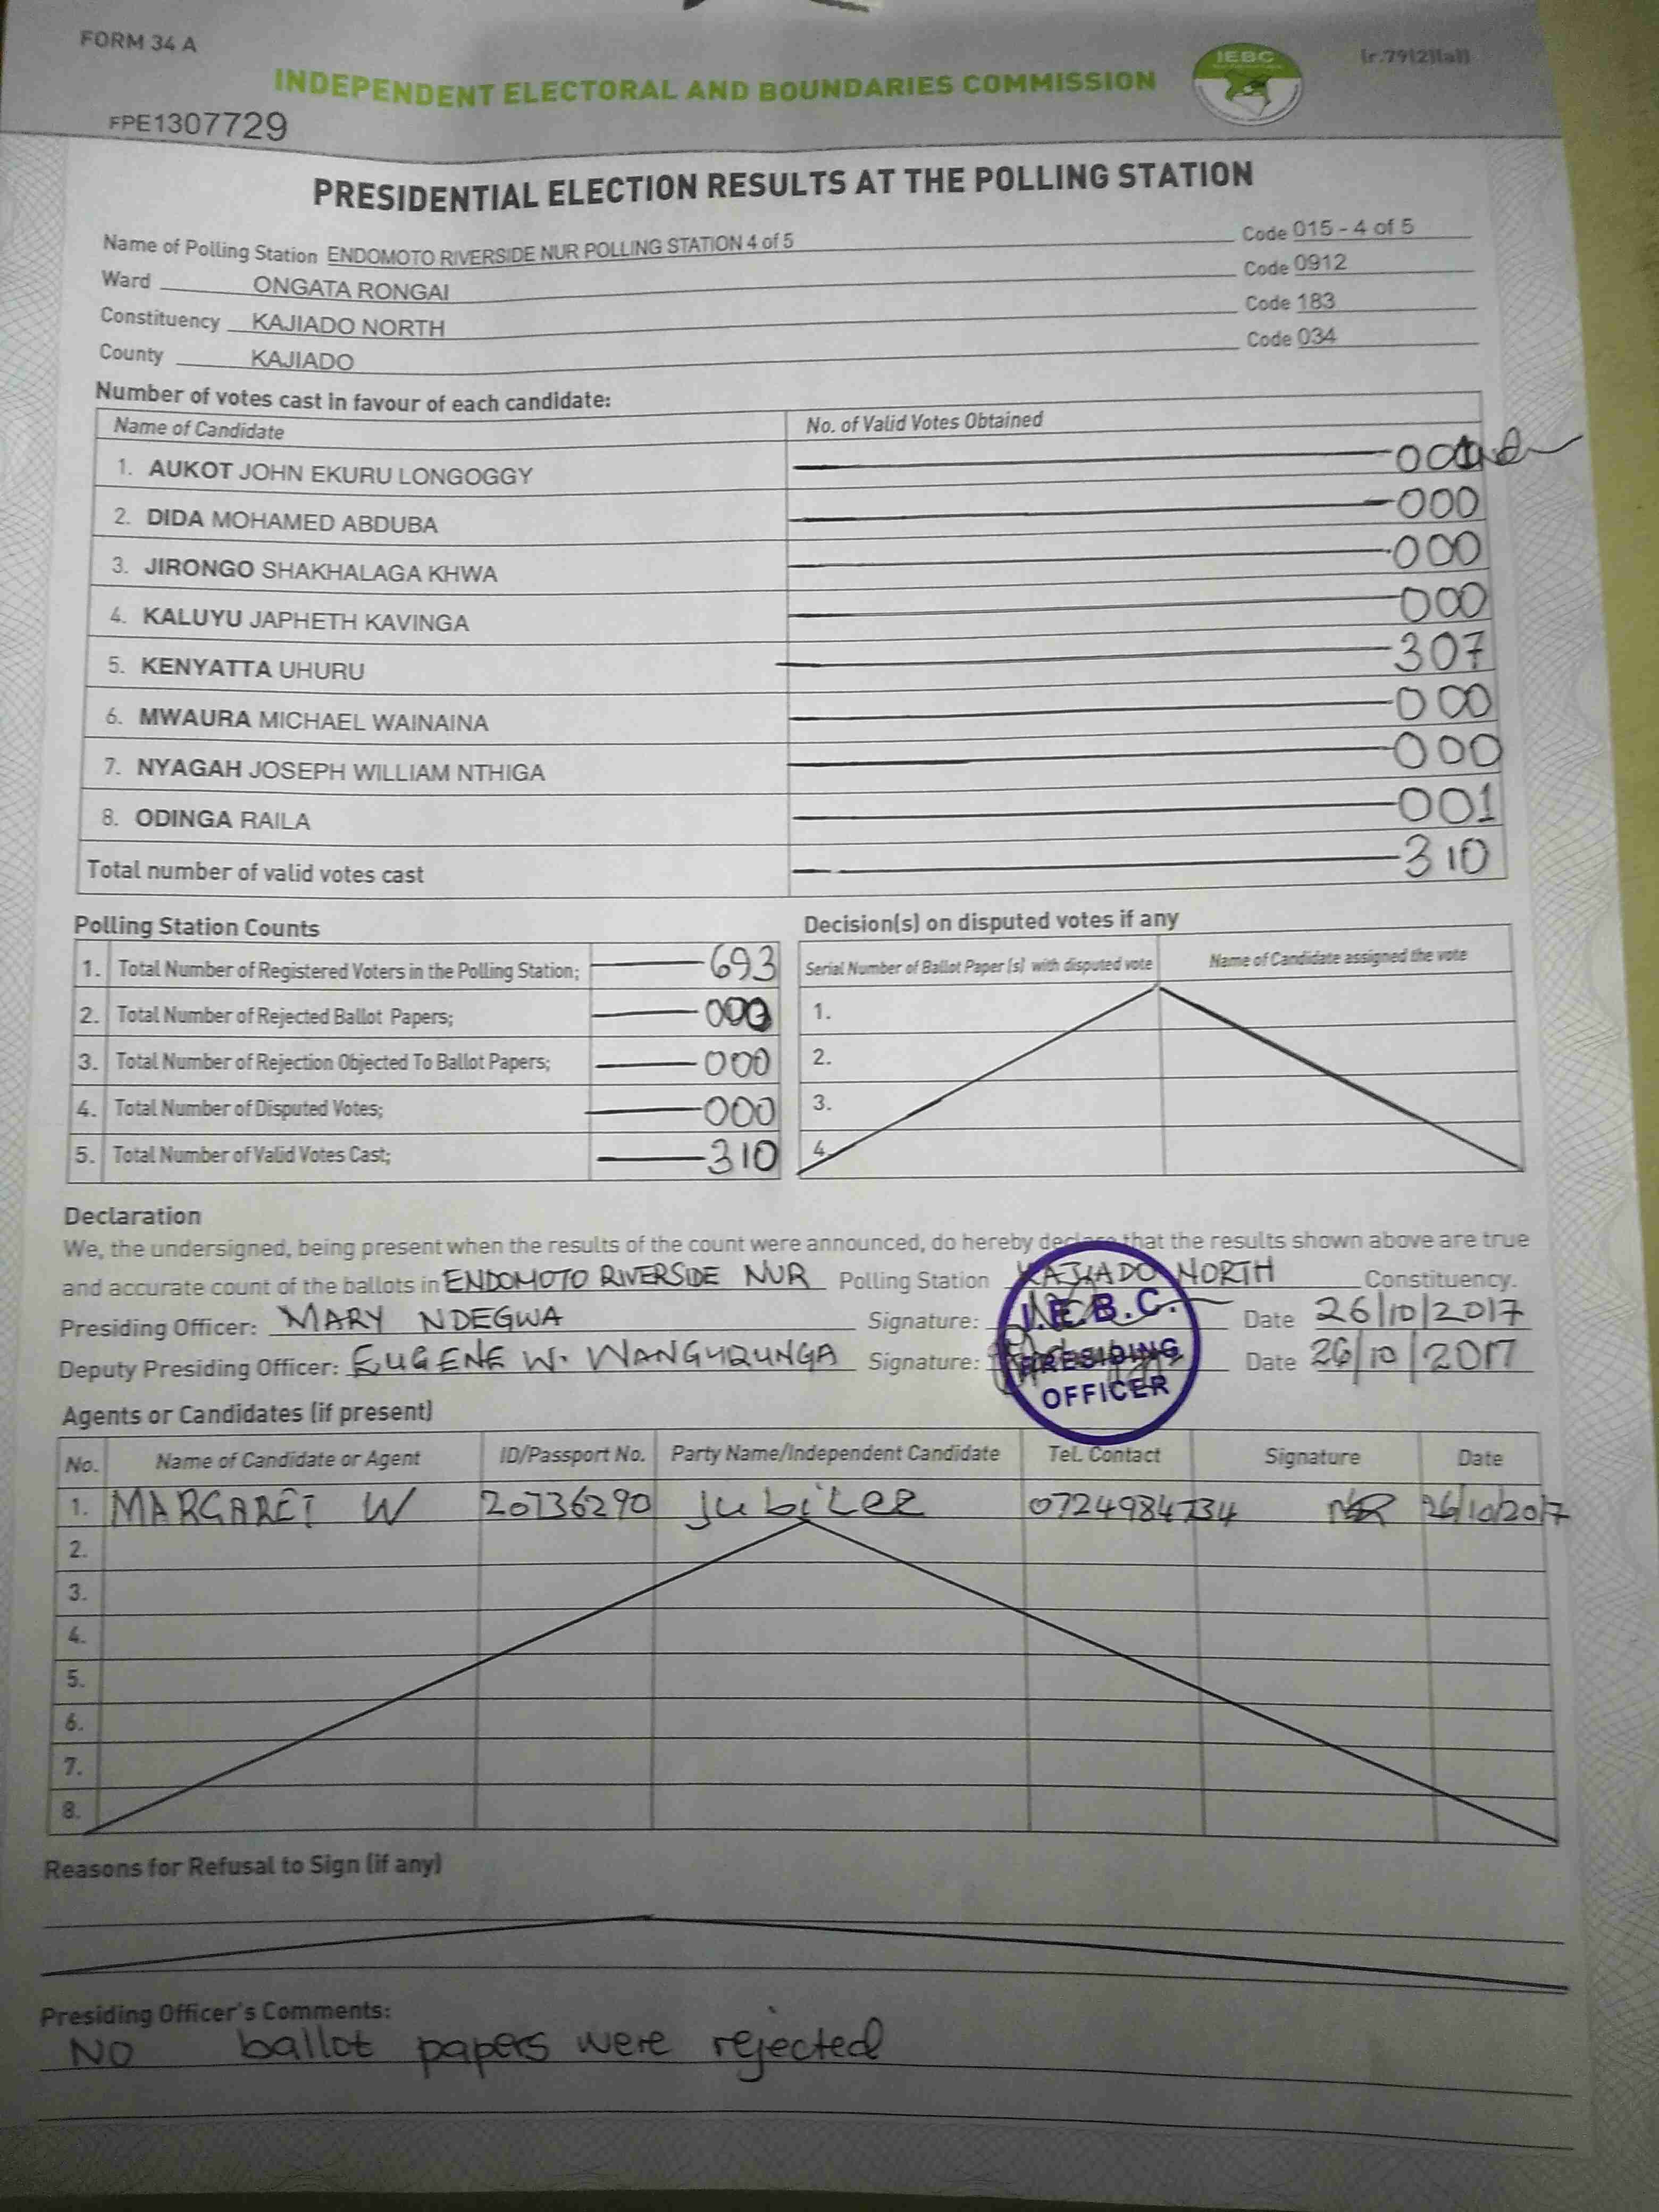 FORM 34 A
INDEPENDENT ELECTORAL AND BOUNDARIES COMMISSION
IEBC
FPE1307729
PRESIDENTIAL ELECTION RESULTS AT THE POLLING STATION
Name of Polling Station ENDOMOTO RIVERSIDE NUR POLLING STATION 4 of 5 Code 015 - 4 of 5
Ward ONGATA RONGAI Code 0912
Constituency KAJIADO NORTH Code 183
County KAJIADO Code 034
Number of votes cast in favour of each candidate:
Name of Candidate No. of Valid Votes Obtained
1. AUKOT JOHN EKURU LONGOGGY
2. DIDA MOHAMED ABDUBA 000
3. JIRONGO SHAKHALAGA KHWA 000
4. KALUYU JAPHETH KAVINGA 000
5. KENYATTA UHURU 307
6. MWAURA MICHAEL WAINAINA 000
7. NYAGAH JOSEPH WILLIAM NTHIGA 000
8. ODINGA RAILA 001
Total number of valid votes cast 310
Polling Station Counts
1. Total Number of Registered Voters in the Polling Station; 693
2. Total Number of Rejected Ballot Papers; 000
3. Total Number of Rejection Objected To Ballot Papers; 000
4. Total Number of Disputed Votes; 000
5. Total Number of Valid Votes Cast; 310
Decision(s) on disputed votes if any
Serial Number of Ballot Paper (s) with disputed vote Name of Candidate assigned the vote
1.
2.
3.
4.
Declaration
We, the undersigned, being present when the results of the count were announced, do hereby declare that the results shown above are true
and accurate count of the ballots in ENDOMOTO RIVERSIDE NUR Polling Station KAJIADO NORTH Constituency.
Presiding Officer: MARY NDEGWA Signature: Date 26/10/2017
Deputy Presiding Officer: EUGENE W. Signature: Date 26/10/2017
I.E.B.C.
PRESIDING
OFFICER
Agents or Candidates (if present)
No. Name of Candidate or Agent ID/Passport No. Party Name/Independent Candidate Tel. Contact Signature Date
1. MARGARET W 20736290 Jubilee 0724984734 26/10/2017
2.
3.
4.
5.
6.
7.
8.
Reasons for Refusal to Sign (if any)
Presiding Officer's Comments:
NO ballot papers were rejected